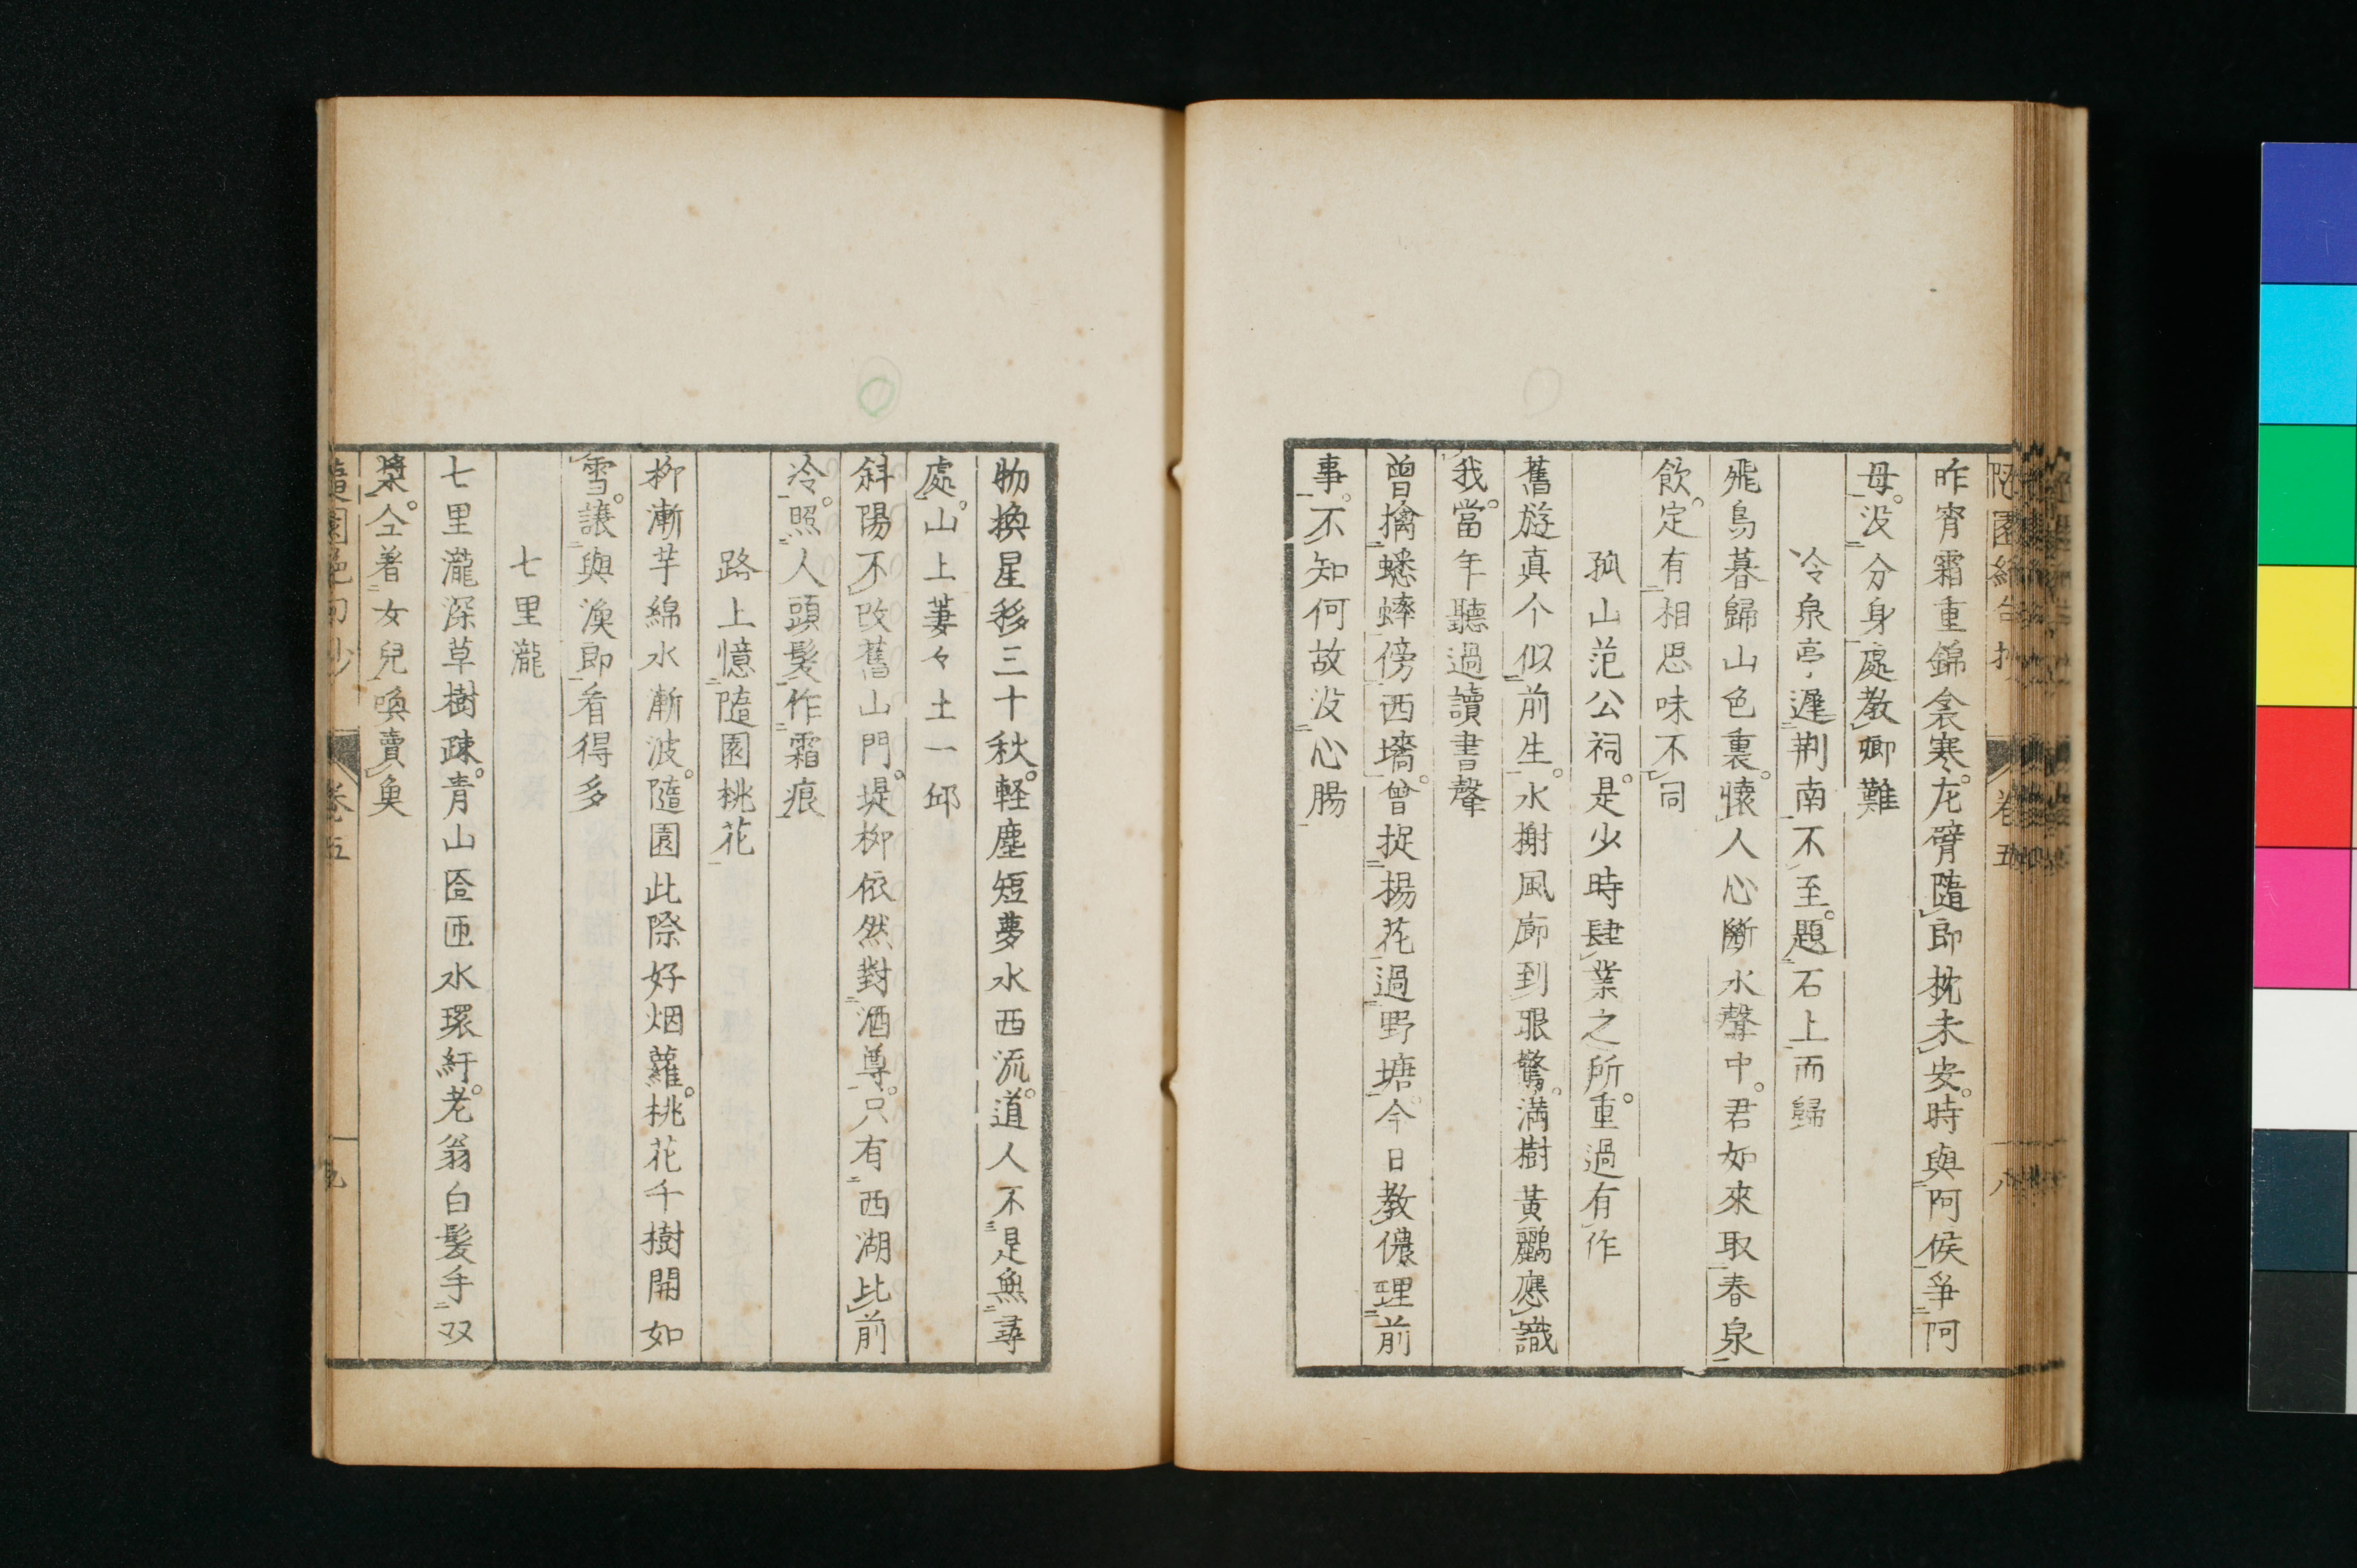 昨宵霜重錦衾寒。左臂隨郎枕未安。時與阿侯爭阿
母。没分身處教卿難
冷泉亭遲荆南不至。題石上而歸
飛鳥暮歸山色裏。懷人心斷水聲中。君如來取春泉
飲。定有相思味不同
孤山范公祠。是少時肆業之所。重過有作
舊遊真个似前生。水榭風廊到眼驚。満樹黃鸝應識
我。當年聽過讀書聲
曾擒蟋蟀傍西墻。曾捉楊花過野塘。今日教儂理前
事。不知何故没心腸
卷五
八
物換星移三十秋。軽塵短夢水西流。道人不是無尋
處。山上萋々土一邱
斜陽不改舊山門。堤柳依然對酒尊。只有西湖比前
冷。照人頭髮作霜痕
路上憶隨園桃花
柳漸芊綿水漸波。隨園此際好烟蘿。桃花千樹開如
雪。讓與漁郎看得多
七里瀧
七里瀧深草樹疎。青山匼匝水環紆。老翁白髪手双
槳。仝着女兒喚賣魚
隨園絶句抄
卷五
九